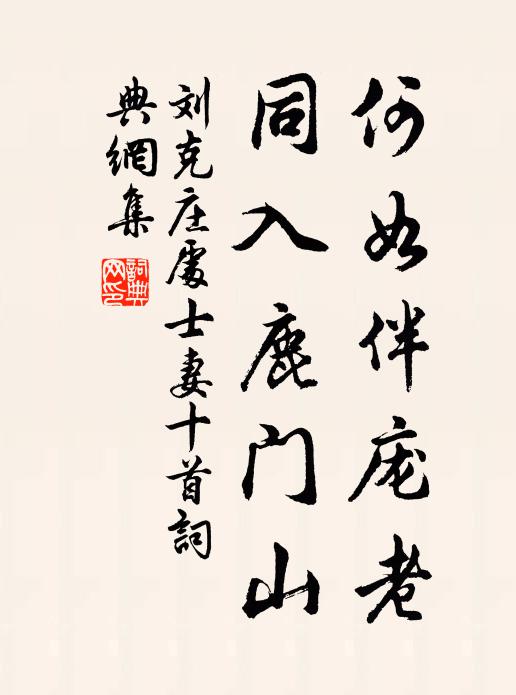 何如伴庞老
同入鹿门山
刘克庄處士妻十首詞
典網集
詞典
网印